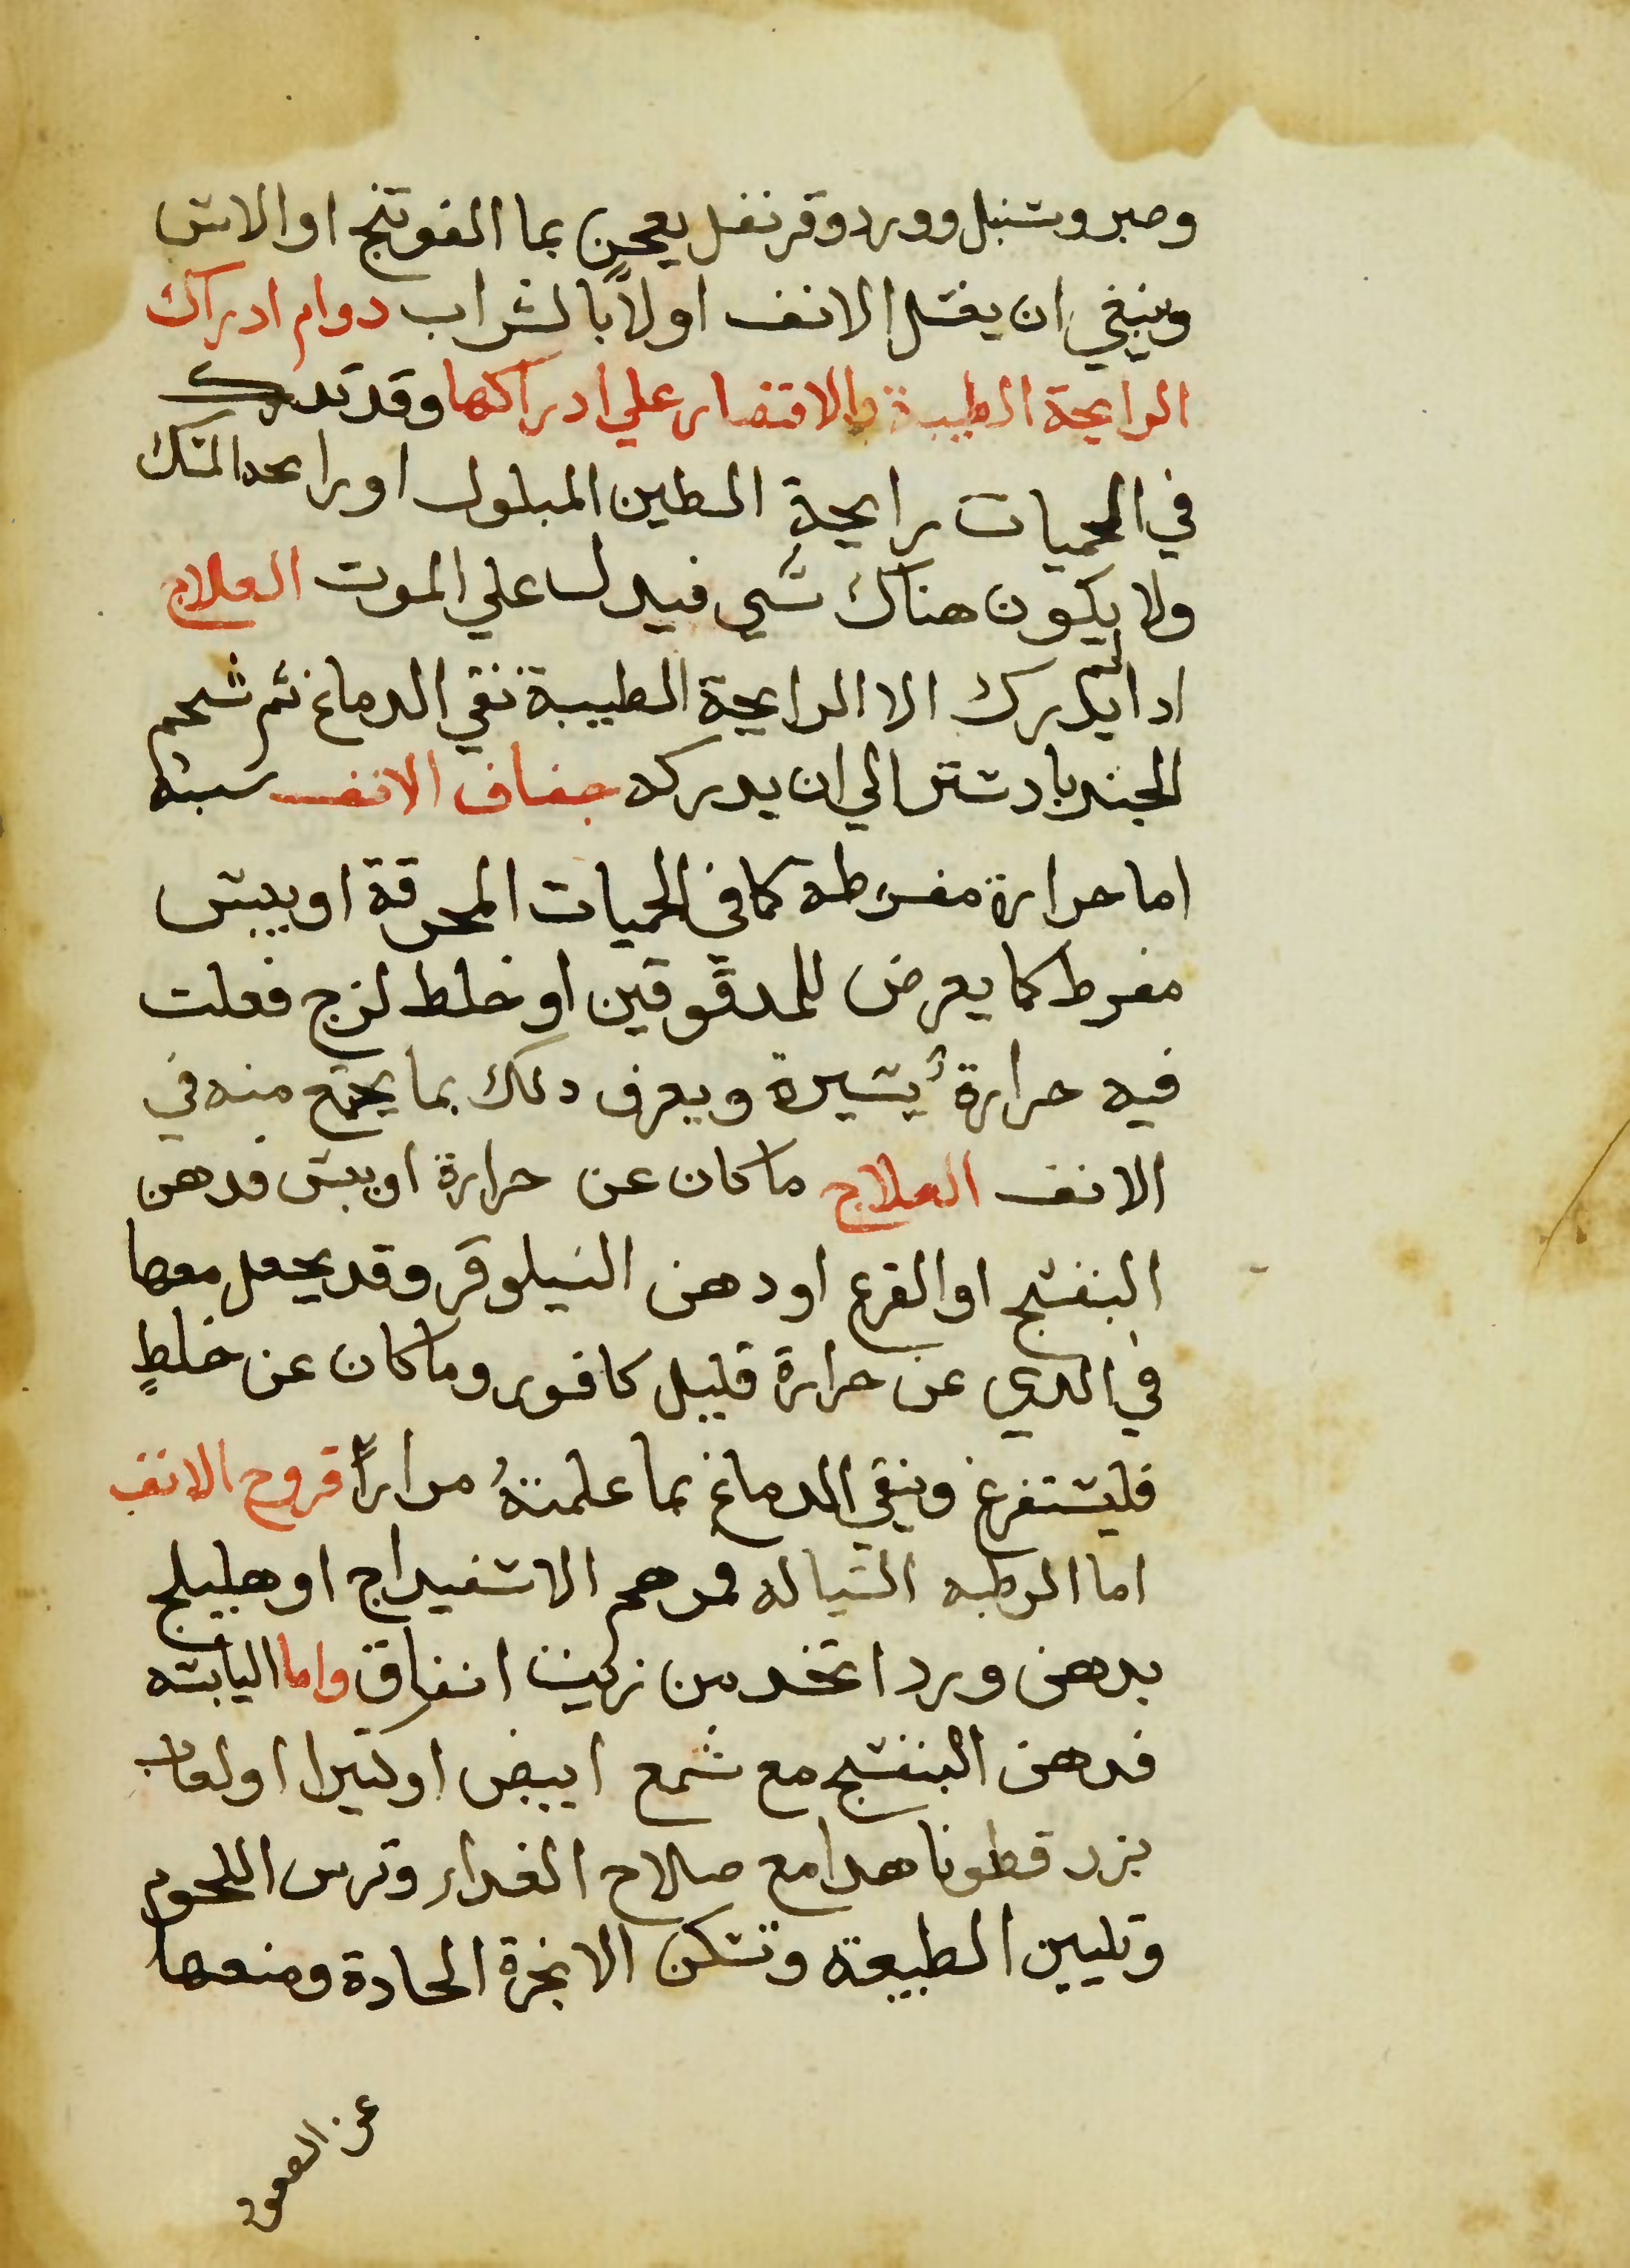 وصبر وسنبل وورد وقرنفل يعجن بما الفوتنج او الاس
وينبغي ان يغسل الانف اولاً بالشراب دوام ادراك
الرايحة الطيبة والاقتصار علي ادراكها وقد تدرك
في الحميات رايحة الطين المبلول او رايحه المسك
ولا يكون هناك شي فيدل علي الموت العلاج
ادا لم يدرك الا الرايحة الطيبة نقي الدماغ ثم شمم
الجندبادستر الي ان يدركه جفاف الانف سببه
اما حرارة مفرطه كما في الحميات المحرقة او يبس
مفرط كما يعرض للمدقوقين او خلط لزج فعلت
فيه حرارة يسيرة ويعرف دلك بما يجتمع منه في
الانف العلاج ما كان عن حرارة او يبس فدهن
البنفسج او القرع او دهن النيلوفر وقد يجعل معها
في الدي عن حرارة قليل كافور وما كان عن خلطٍ
فليستفرغ وينقي الدماغ بما علمتهُ مراراً قروح الانف
اما الرطبه السياله فمرهم الاسفيداج او هليلج
بدهن ورد اتخد من زيت انفاق واما اليابسه
فدهن البنفسج مع شمع ابيض او كتيرا او لعاب
بزر قطونا هدا مع صلاح الغداء وترك اللحوم
وتليين الطبيعة وتسكن الابخرة الحادة ومنعها
عن الصعود